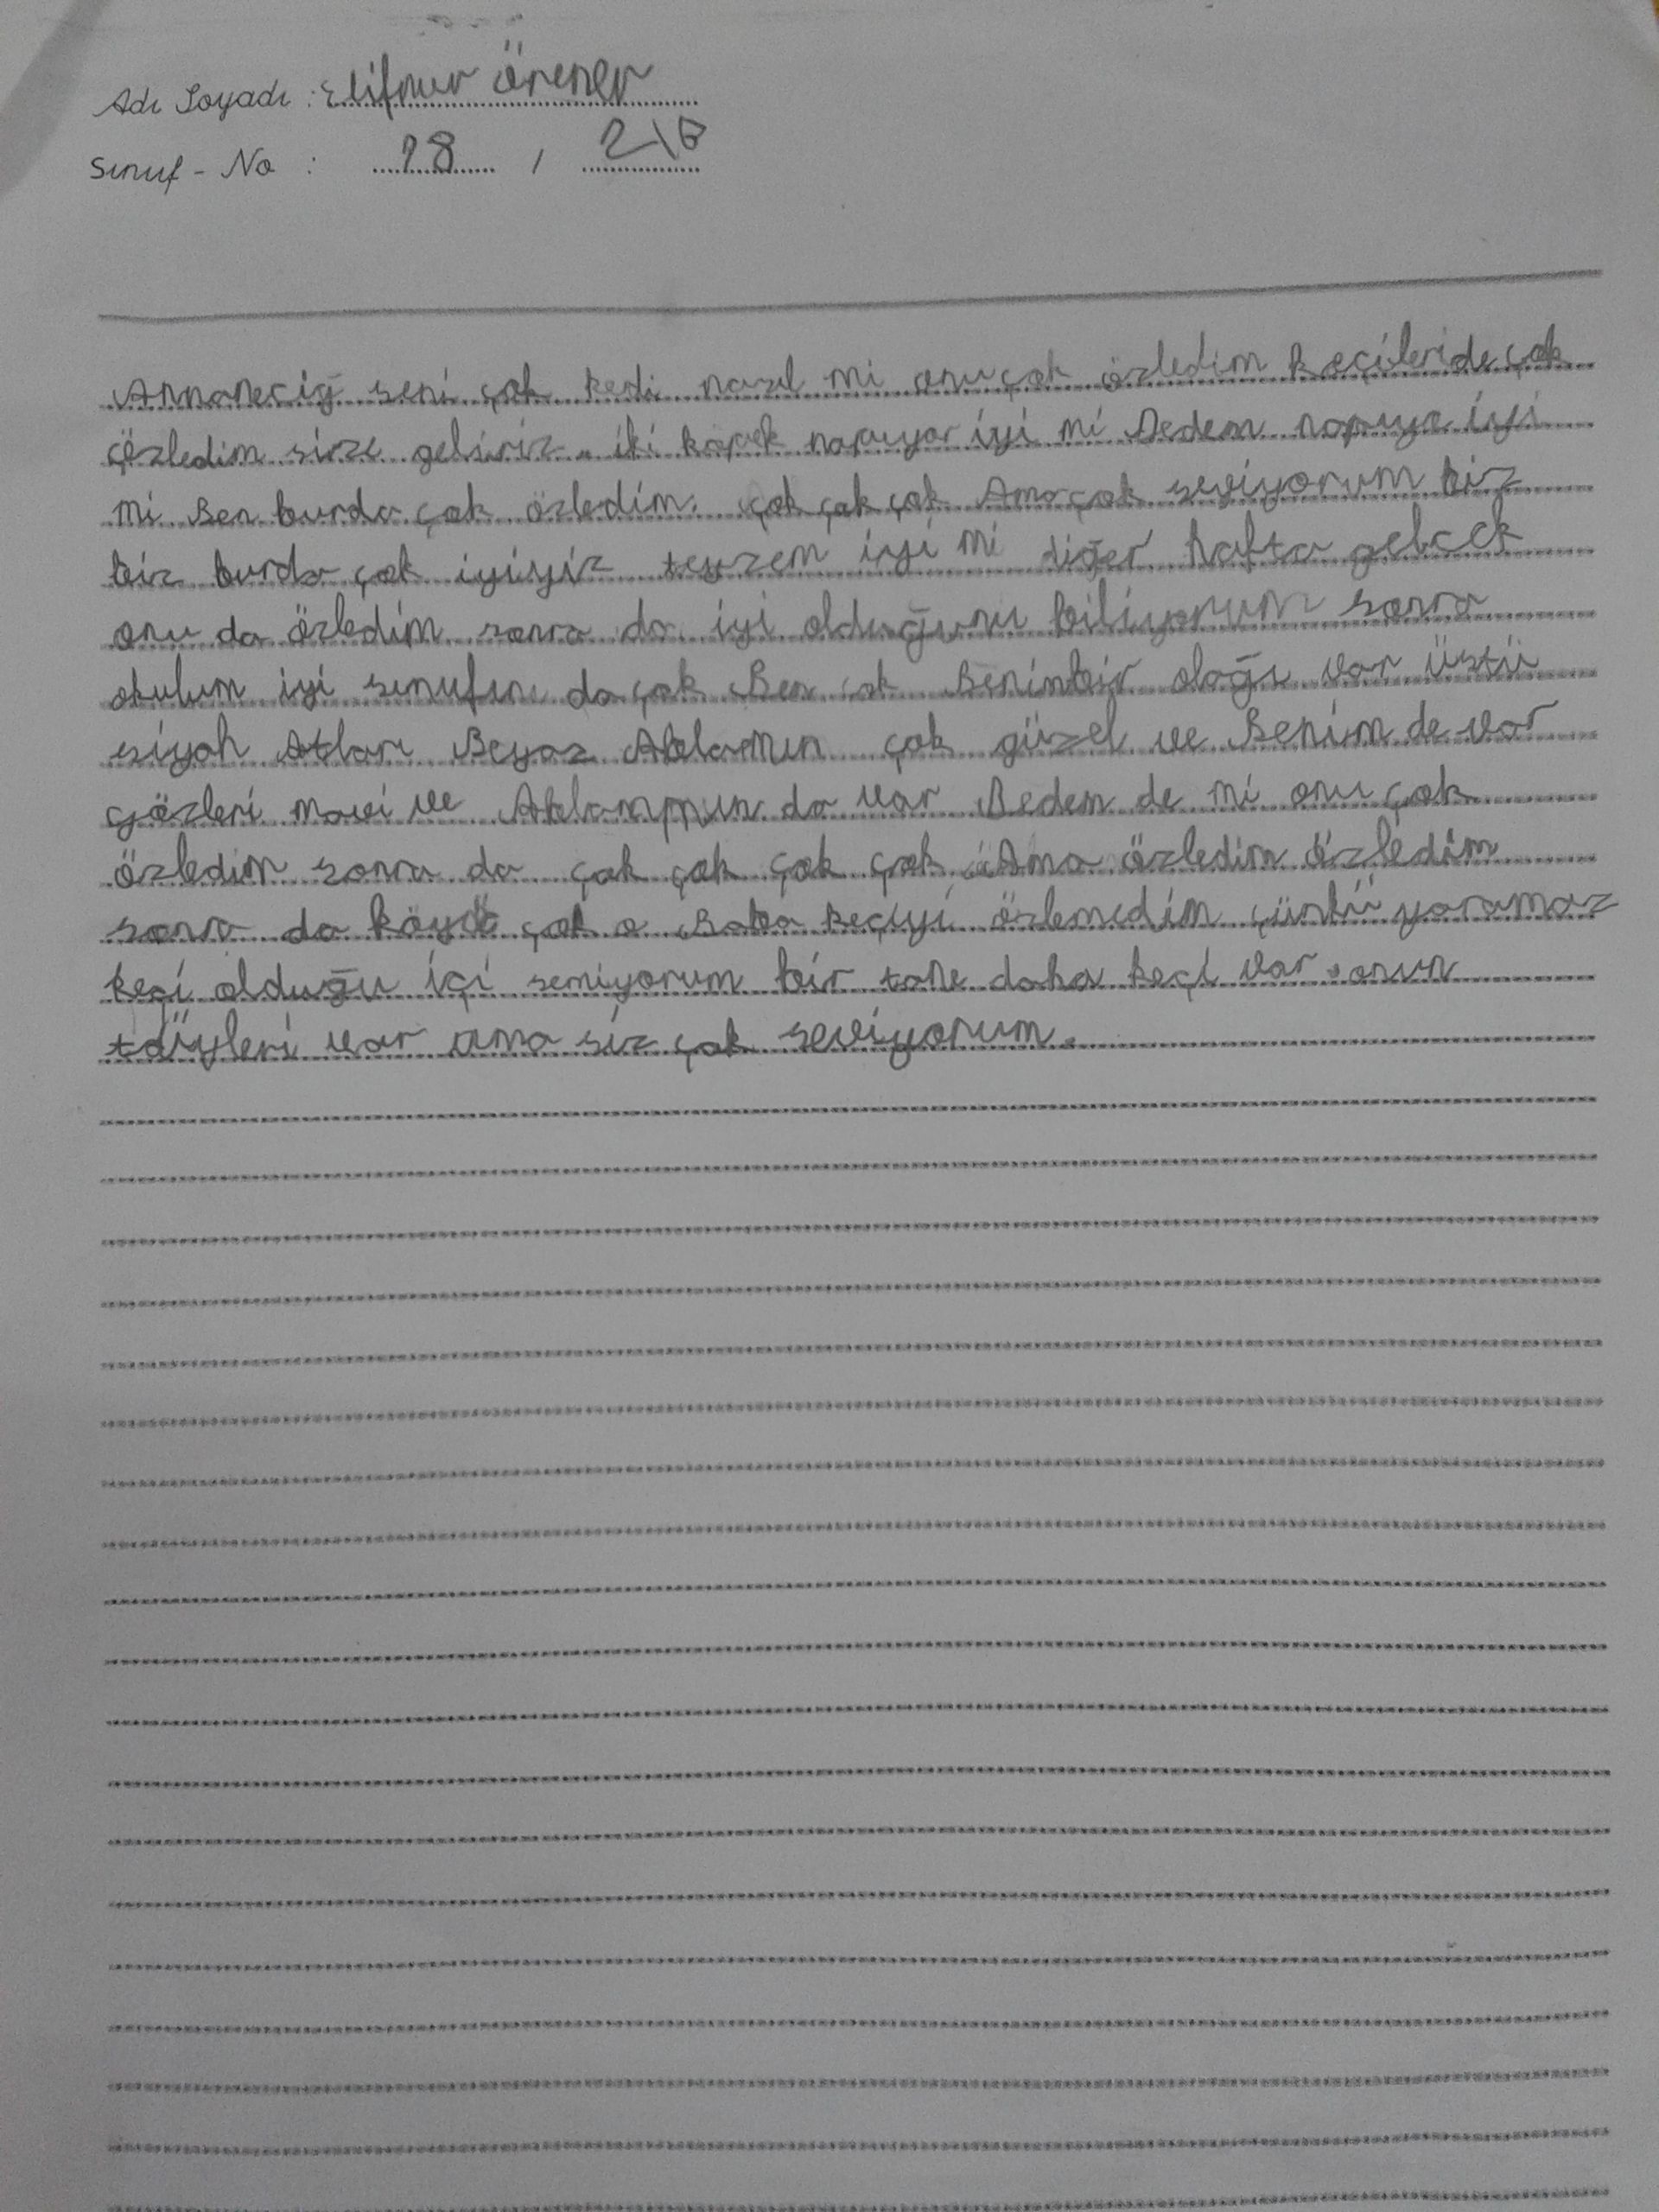 Adı Soyadı : Elifnur Örener
Sınıf - No : 28 / 2/B
Annaneciğ seni çok kedi nazıl mi onu çok özledim keçileride çok
çözledim size geliriz. iki köpek napıyor iyi mi Dedem napıyo iyi
mi Ben burda çok özledim. çok çok çok Ama çok seviyorum biz
biz burda çok iyiyiz teyzem iyi mi diğer hafta gelcek
onu da özledim sonra da iyi olduğunu biliyorum sonra
okulum iyi sınıfım da çok Ben çok Benim bir olağı var üstü
siyah Atları Beyaz Ablamın çok güzel ve Benim de var
gözleri mavi ve Ablammın da var Dedem de mi onu çok
özledim sonra da çok çok çok çok Ama özledim özledim
sonra da köyü çok o Baba keçiyi özlemedim çünkü yaramaz
keçi olduğu içi semiyorum bir tane daha keçi var onun
töyleri var ama siz çok seviyorum.